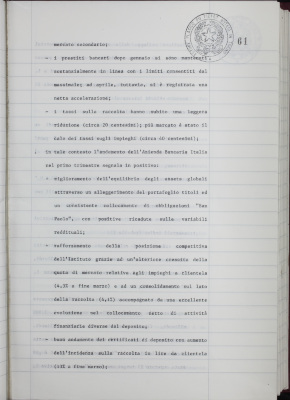 61
mercato secondario;
- i prestiti bancari dopo gennaio si sono mantenuti
sostanzialmente in linea con i limiti consentiti dal
massimale; ad aprile, tuttavia, si è registrata una
netta accelerazione;
- i tassi sulla raccolta hanno subito una leggera
riduzione (circa 20 centesimi); più marcato è stato il
calo dei tassi sugli impieghi (circa 40 centesimi);
in tale contesto l'andamento dell'Azienda Bancaria Italia
nel primo trimestre segnala in positivo:
- miglioramento dell'equilibrio degli assets globali
attraverso un alleggerimento del portafoglio titoli ed
un consistente collocamento di obbligazioni "San
Paolo", con positive ricadute sulle variabili
reddituali;
- rafforzamento della posizione competitiva
dell'Istituto grazie ad un'ulteriore crescita della
quota di mercato relativa agli impieghi a clientela
(4,3% a fine marzo) e ad un consolidamento sul lato
della raccolta (4,4%) accompagnato da una eccellente
evoluzione nel collocamento netto di attività
finanziarie diverse dal deposito;
- buon andamento dei certificati di deposito con aumento
dell'incidenza sulla raccolta in lire da clientela
(13% a fine marzo);